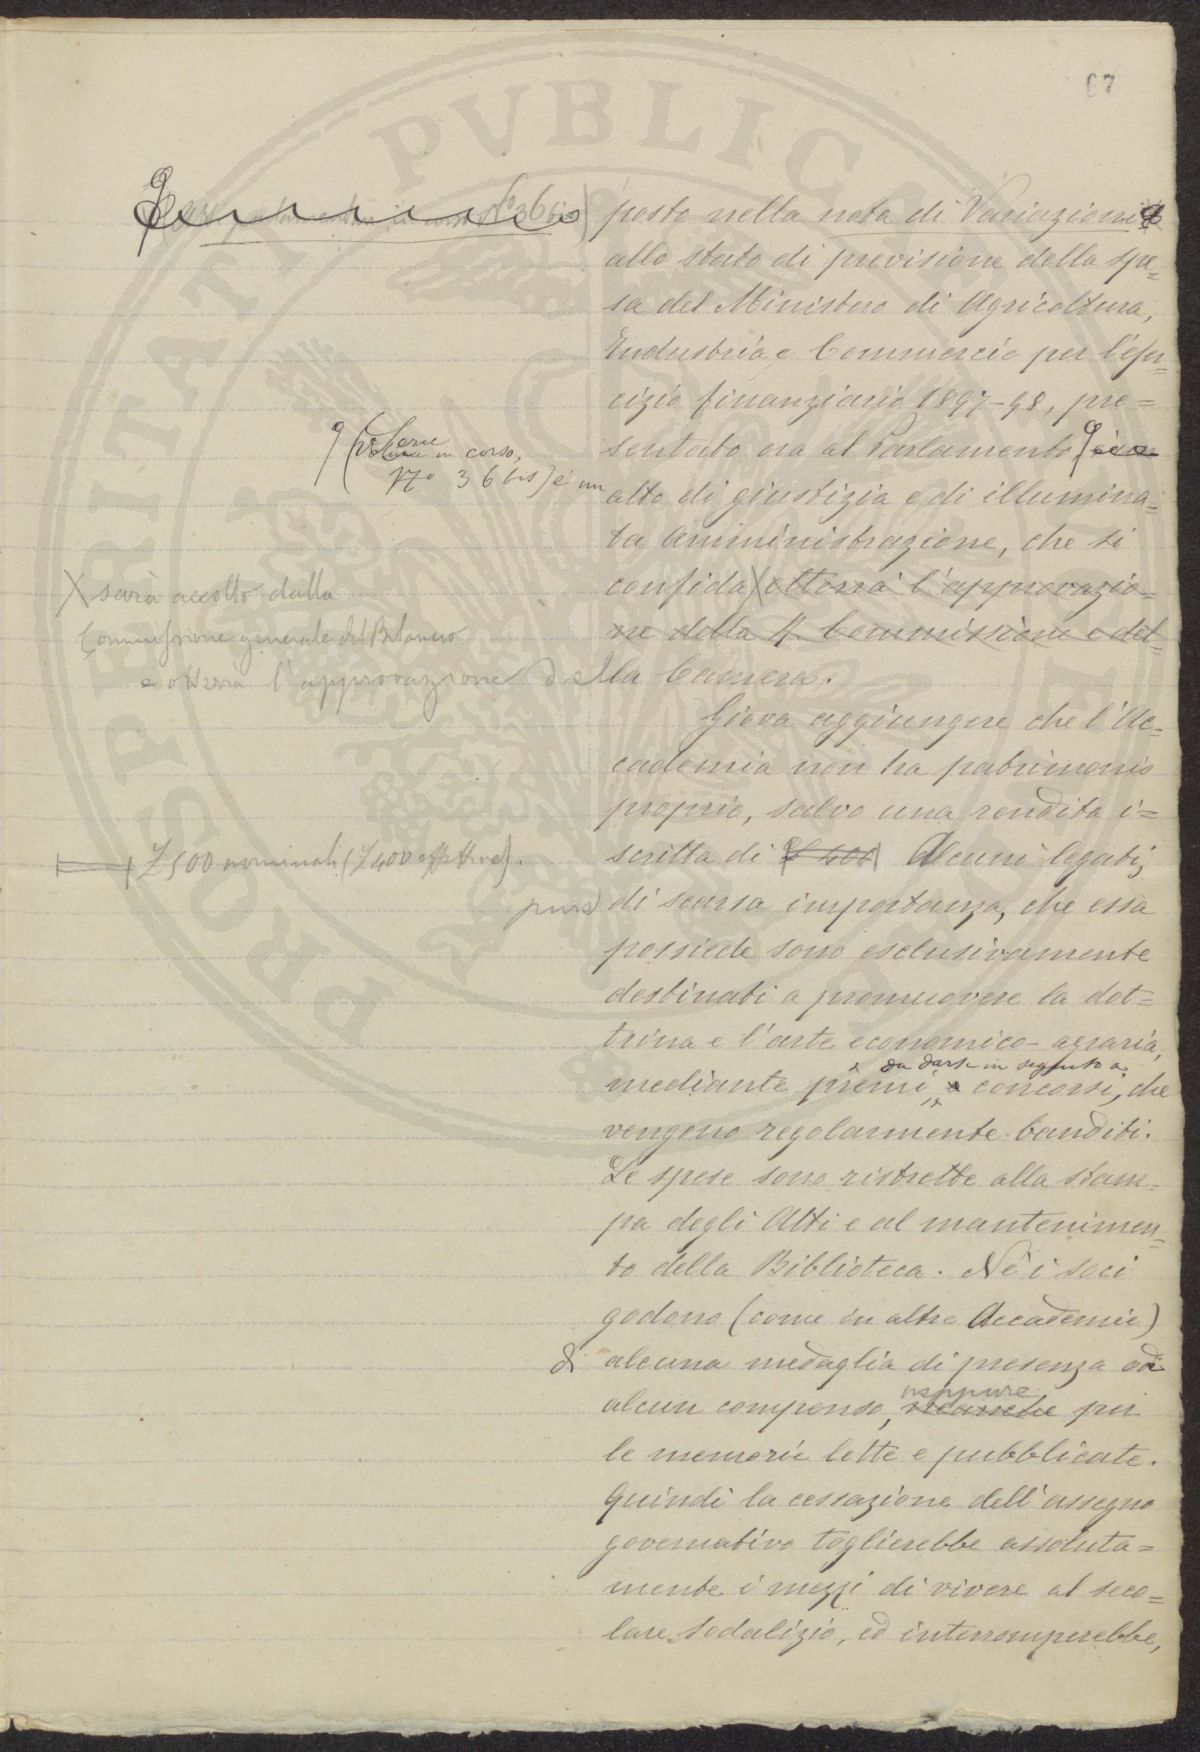 67
PVBLICAE
PROSPERITATI
No 36 bis)
posto nella nota di Variazioni
allo stato di previsione della spe=
sa del Ministero di Agricoltura,
Industria e Commercio per l'eser=
cizio finanziario 1897-98, pre=
sentato ora al Parlamento
(Serie in corso,
No 36 bis) è un
atto di giustizia e di illumina=
ta amministrazione, che si
confida otterrà l'approvazio=
ne della G. Commissione e del=
X sarà accolto dalla
Commissione generale del Bilancio
e otterrà l'approvazione della Camera.
Giova aggiungere che l'Ac=
cademia non ha patrimonio
proprio, salvo una rendita i=
scritta di £ 400 Alcuni legati,
£ 500 nominali (£ 400 effettive).
pure di scarsa importanza, che essa
possiede sono esclusivamente
destinati a promuovere la dot=
trina e l'arte economico-agraria,
da darsi in seguito a
mediante premi e concorsi, che
vengono regolarmente banditi.
Le spese sono ristrette alla stam=
pa degli Atti e al mantenimen=
to della Biblioteca. Nè i soci
godono (come in altre Accademie)
di alcuna medaglia di presenza od
oppure
alcun compenso, neanche per
le memorie lette e pubblicate.
Quindi la cessazione dell'assegno
governativo toglierebbe assoluta=
mente i mezzi di vivere al seco=
lare sodalizio, ed interromperebbe,